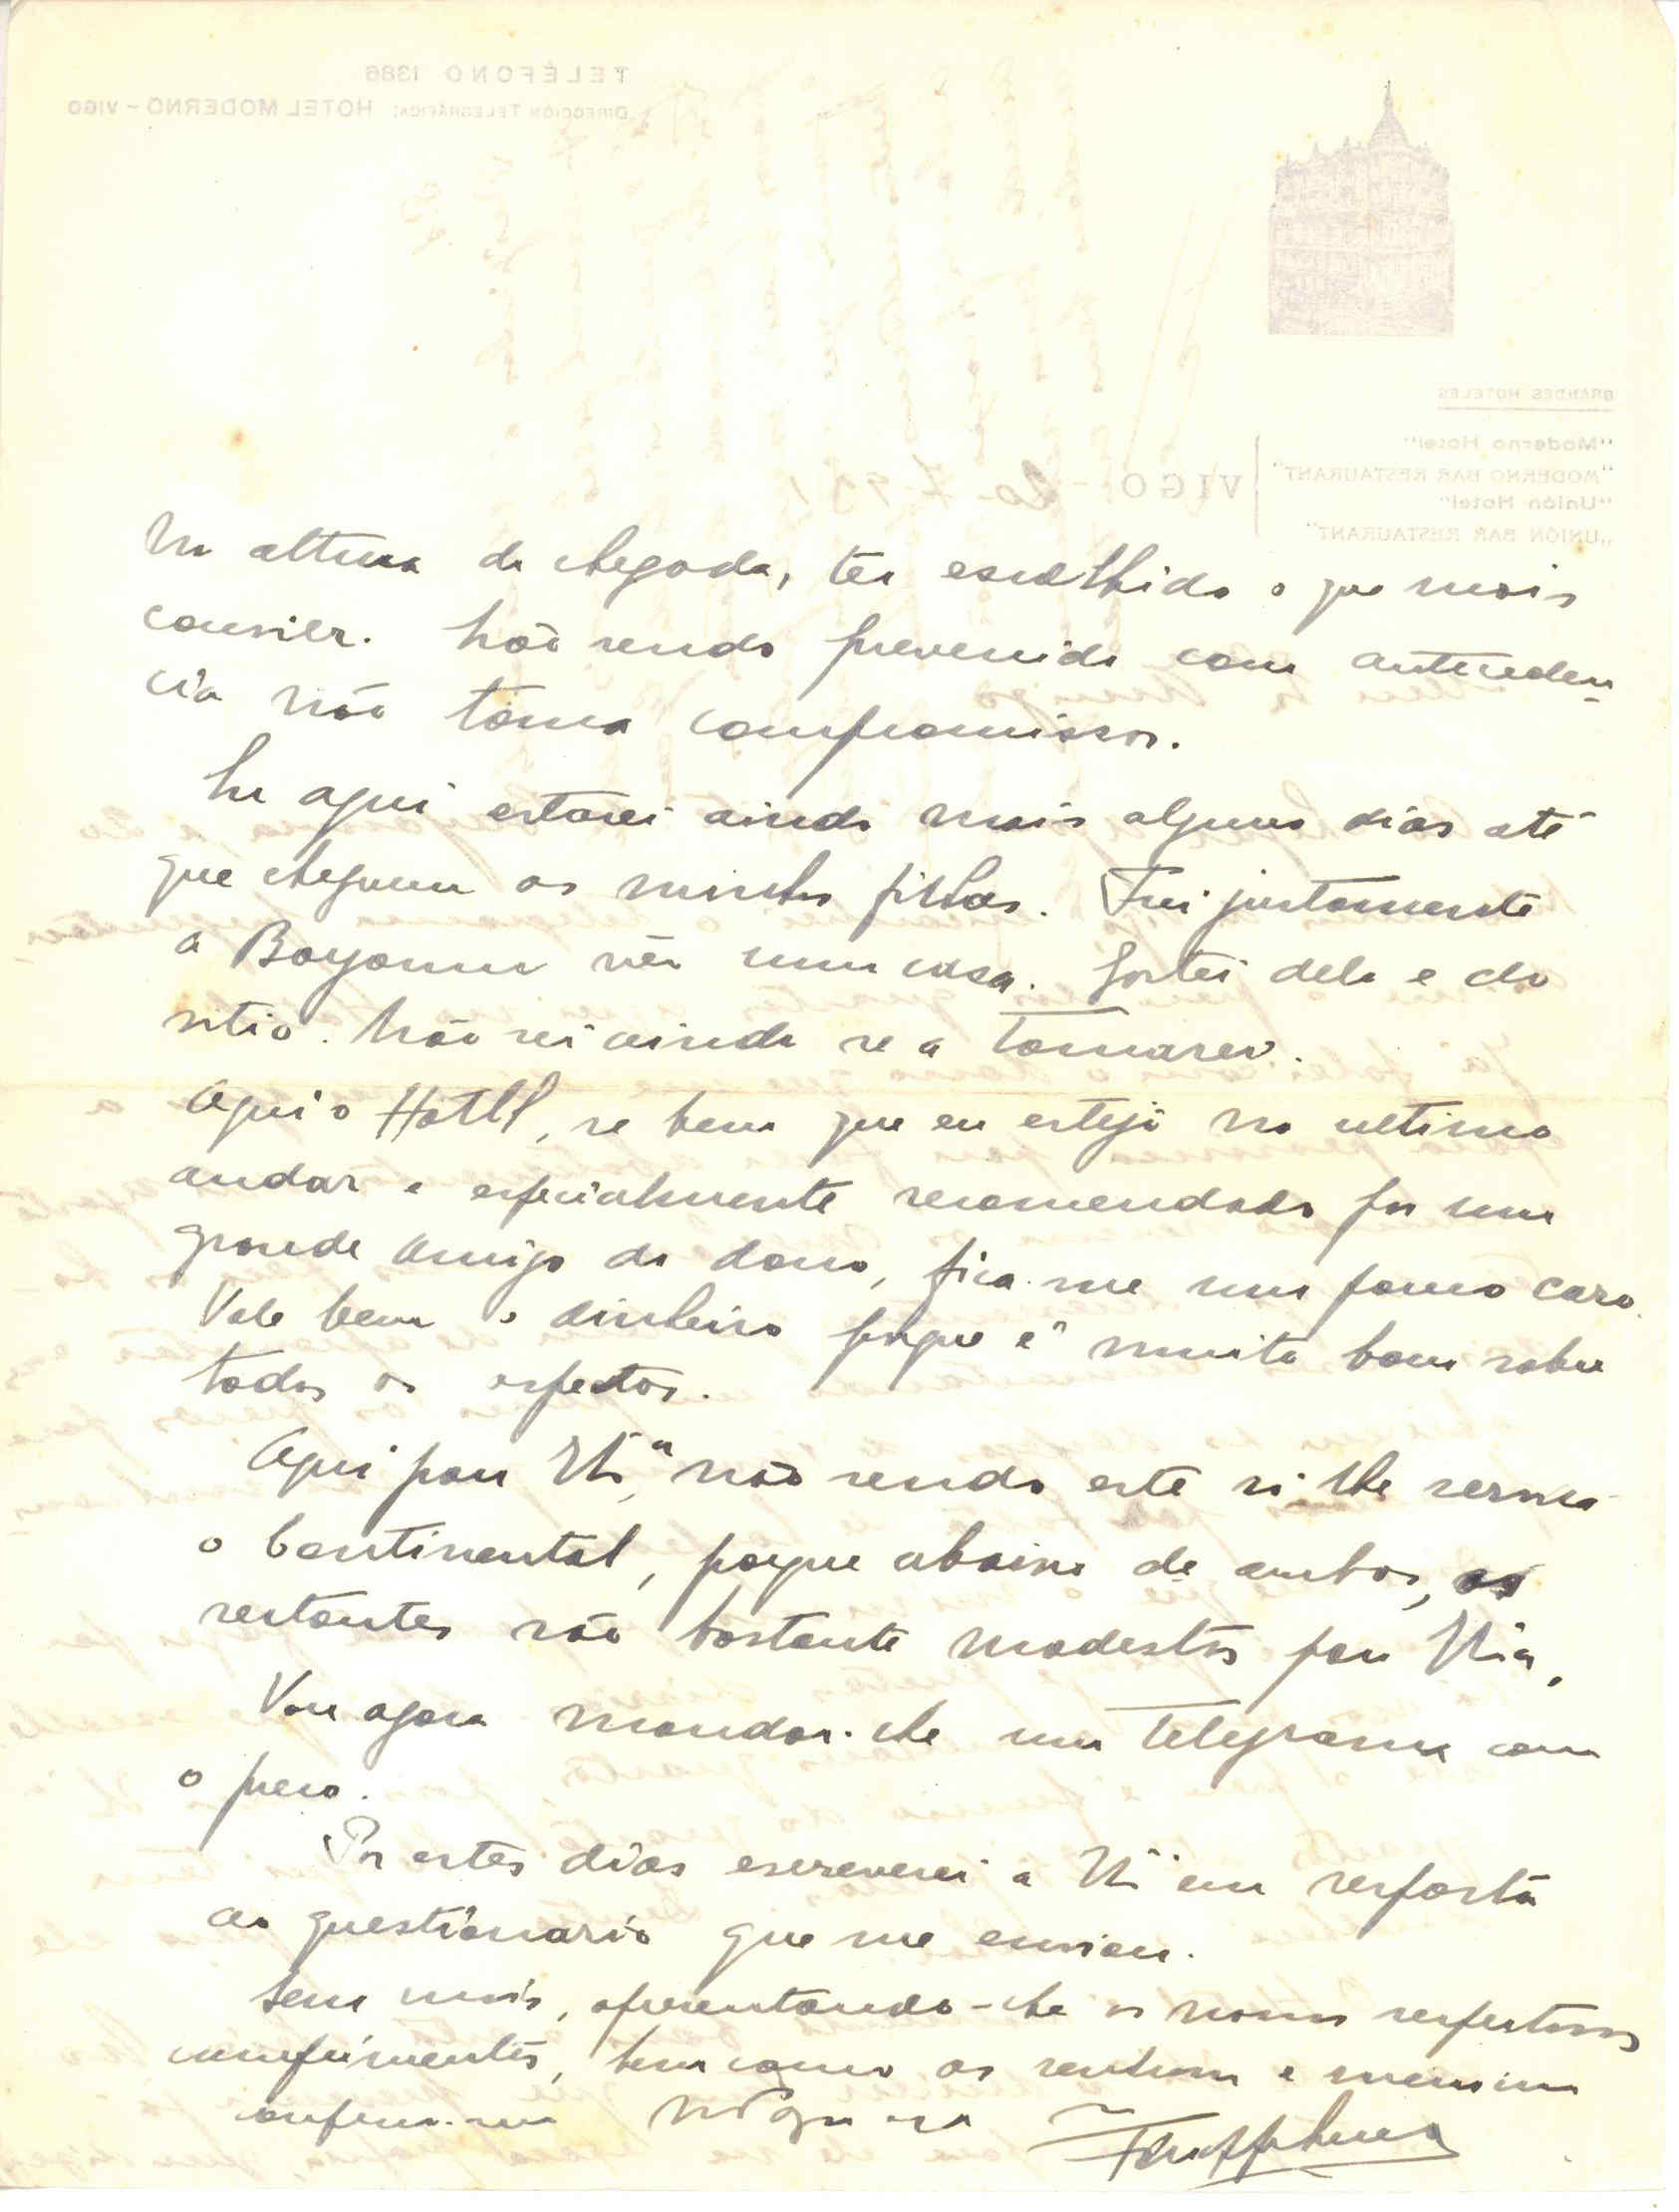 TELÉFONO 1386
DIRECCIÓN TELEGRÁFICA: HOTEL MODERNO - VIGO
GRANDES HOTELES
"Moderno Hotel"
"MODERNO BAR RESTAURANT"
"Unión Hotel"
"UNIÓN BAR RESTAURANT"
VIGO - 20-7-931
Na altura da chegada, ter escolhido o que mais
convier. Não sendo prevenido com anteceden-
cia não toma compromissos.
Eu aqui estarei ainda mais alguns dias até
que cheguem as minhas filhas. Fui justamente
a Bayonna vêr uma casa. Gostei dela e do
sitio. Não sei ainda se a tomarei.
Aqui o Hotel, se bem que eu esteja no ultimo
andar e especialmente recomendado por um
grande amigo do dono, fica-me um pouco caro.
Vale bem o dinheiro porque é muito bom sobre
todos os aspectos.
Aqui para V. Ex.ª não sendo este só lhe servia
o Continental, porque abaixo de ambos, os
restantes são bastante modestos para V. Ex.ª
Vou agora mandar-lhe um telegrama com
o preço.
Por estes dias escreverei a V. Ex.ª em resposta
ao questionario que me enviou.
Sem mais, apresentando-lhe os nossos respeitosos
cumprimentos, bem como ás senhora e menina